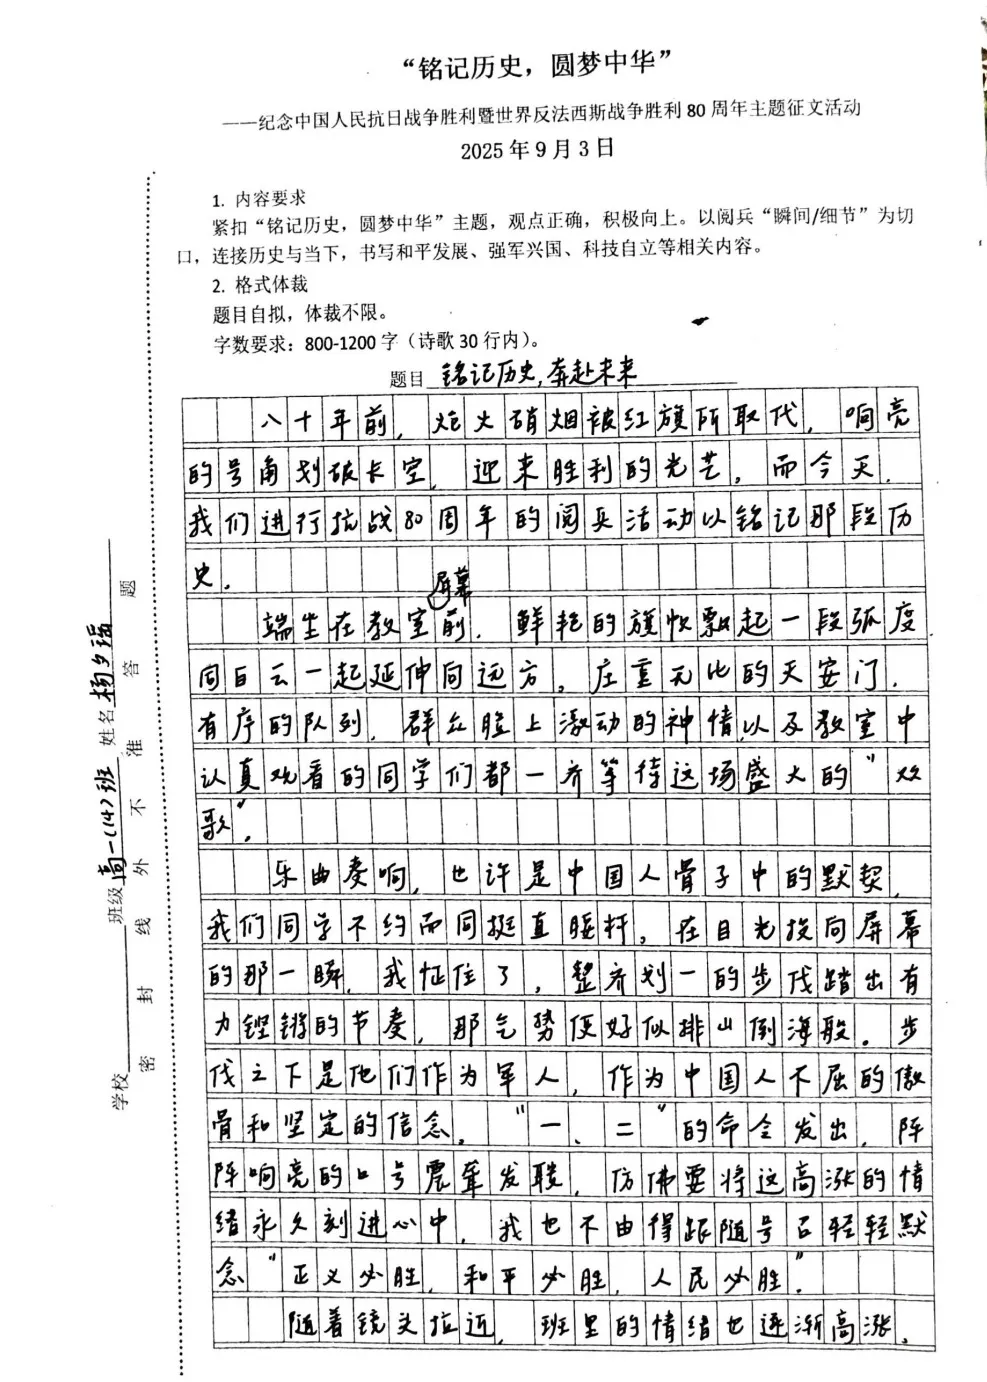 “铭记历史，圆梦中华”
——纪念中国人民抗日战争胜利暨世界反法西斯战争胜利 80 周年主题征文活动
2025 年 9 月 3 日
1. 内容要求
紧扣“铭记历史，圆梦中华”主题，观点正确，积极向上。以阅兵“瞬间/细节”为切
口，连接历史与当下，书写和平发展、强军兴国、科技自立等相关内容。
2. 格式体裁
题目自拟，体裁不限。
字数要求：800-1200 字（诗歌 30 行内）。
题目 铭记历史,奔赴未来
八十年前，炮火硝烟被红旗所取代，响亮
的号角划破长空，迎来胜利的光芒，而今天，
我们进行抗战80周年的阅兵活动以铭记那段历
史。
屏幕
端坐在教室前，鲜艳的旗帜飘起一段弧度
同白云一起延伸向远方，庄重无比的天安门，
有序的队列，群众脸上激动的神情以及教室中
认真观看的同学们都一齐等待这场盛大的“欢
歌”。
乐曲奏响，也许是中国人骨子中的默契，
我们同学不约而同挺直腰杆，在目光投向屏幕
的那一瞬，我怔住了，整齐划一的步伐踏出有
力铿锵的节奏，那气势便好似排山倒海般。步
伐之下是他们作为军人，作为中国人不屈的傲
骨和坚定的信念，“一、二”的命令发出，阵
阵响亮的口号震耸发聩，仿佛要将这高涨的情
绪永久刻进心中，我也不由得跟随号召轻轻默
念“正义必胜，和平必胜，人民必胜”。
随着镜头拉近，班里的情绪也逐渐高涨，
学校 班级 高一(14)班 姓名 杨夕瑶
密 封 线 外 不 准 答 题